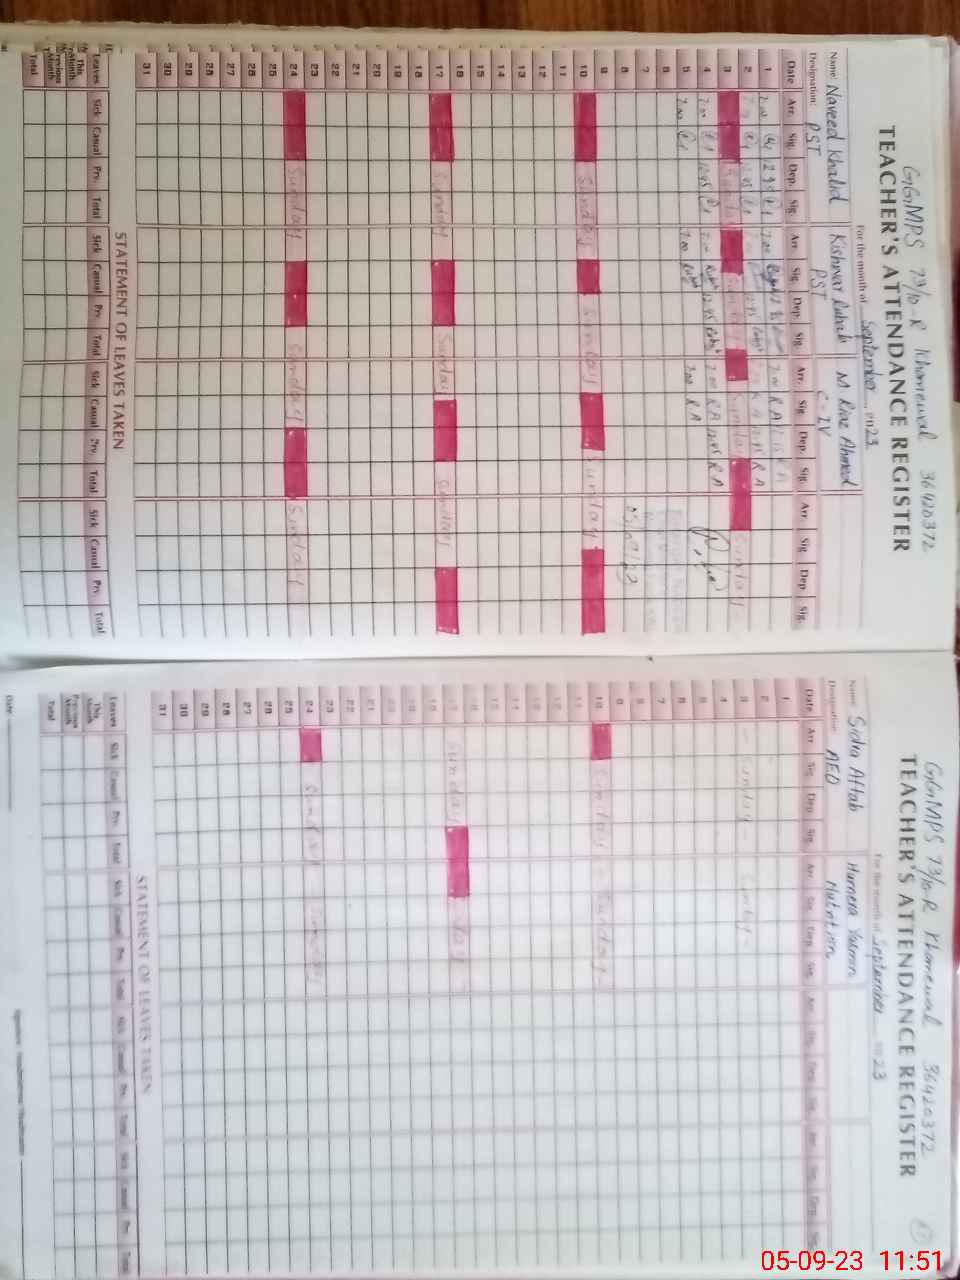 GGMPS 73/10-R Khanewal 36420372
TEACHER'S ATTENDANCE REGISTER
For the month of September 2023
Name: Naveed Khalid Kishwar Rubab M Riaz Ahmed
Designation: PST PST C-IV
Date Arr. Sig. Dep. Sig. Arr. Sig. Dep. Sig. Arr. Sig. Dep. Sig. Arr. Sig. Dep. Sig.
1 7.00 7.00 7.00 R A
2 R A 12.45 R A
3 Sunday Sunday Sunday Sunday
4 7.00 12.45 7.00 12.45 7.00 R A 12.45 R A
5 7.00 7.00 7.00 R A
6
7
8 05/09/23
9
10 Sunday Sunday Sunday
11
12
13
14
15
16
17 Sunday Sunday Sunday
18
19
20
21
22
23
24 Sunday Sunday Sunday
25
26
27
28
29
30
31
STATEMENT OF LEAVES TAKEN
Leaves Sick Casual Prv. Total Sick Casual Prv. Total Sick Casual Prv. Total Sick Casual Prv. Total
This Month
Previous Month
Total
GGMPS 73/10-R Khanewal 36420372
TEACHER'S ATTENDANCE REGISTER
For the month of September 2023
Name: Sidra Aftab Humera Yasmin
Designation: AEO Nutrition
Date Arr. Sig. Dep. Sig. Arr. Sig. Dep. Sig. Arr. Sig. Dep. Sig. Arr. Sig. Dep. Sig.
1
2
3 - Sunday - Sunday -
4
5
6
7
8
9
10 Sunday - Sunday
11
12
13
14
15
16
17 Sunday
18
19
20
21
22
23
24 Sunday Sunday
25
26
27
28
29
30
31
STATEMENT OF LEAVES TAKEN
Leaves Sick Casual Prv. Total Sick Casual Prv. Total Sick Casual Prv. Total Sick Casual Prv. Total
This Month
Previous Month
Total
Date
05-09-23 11:51